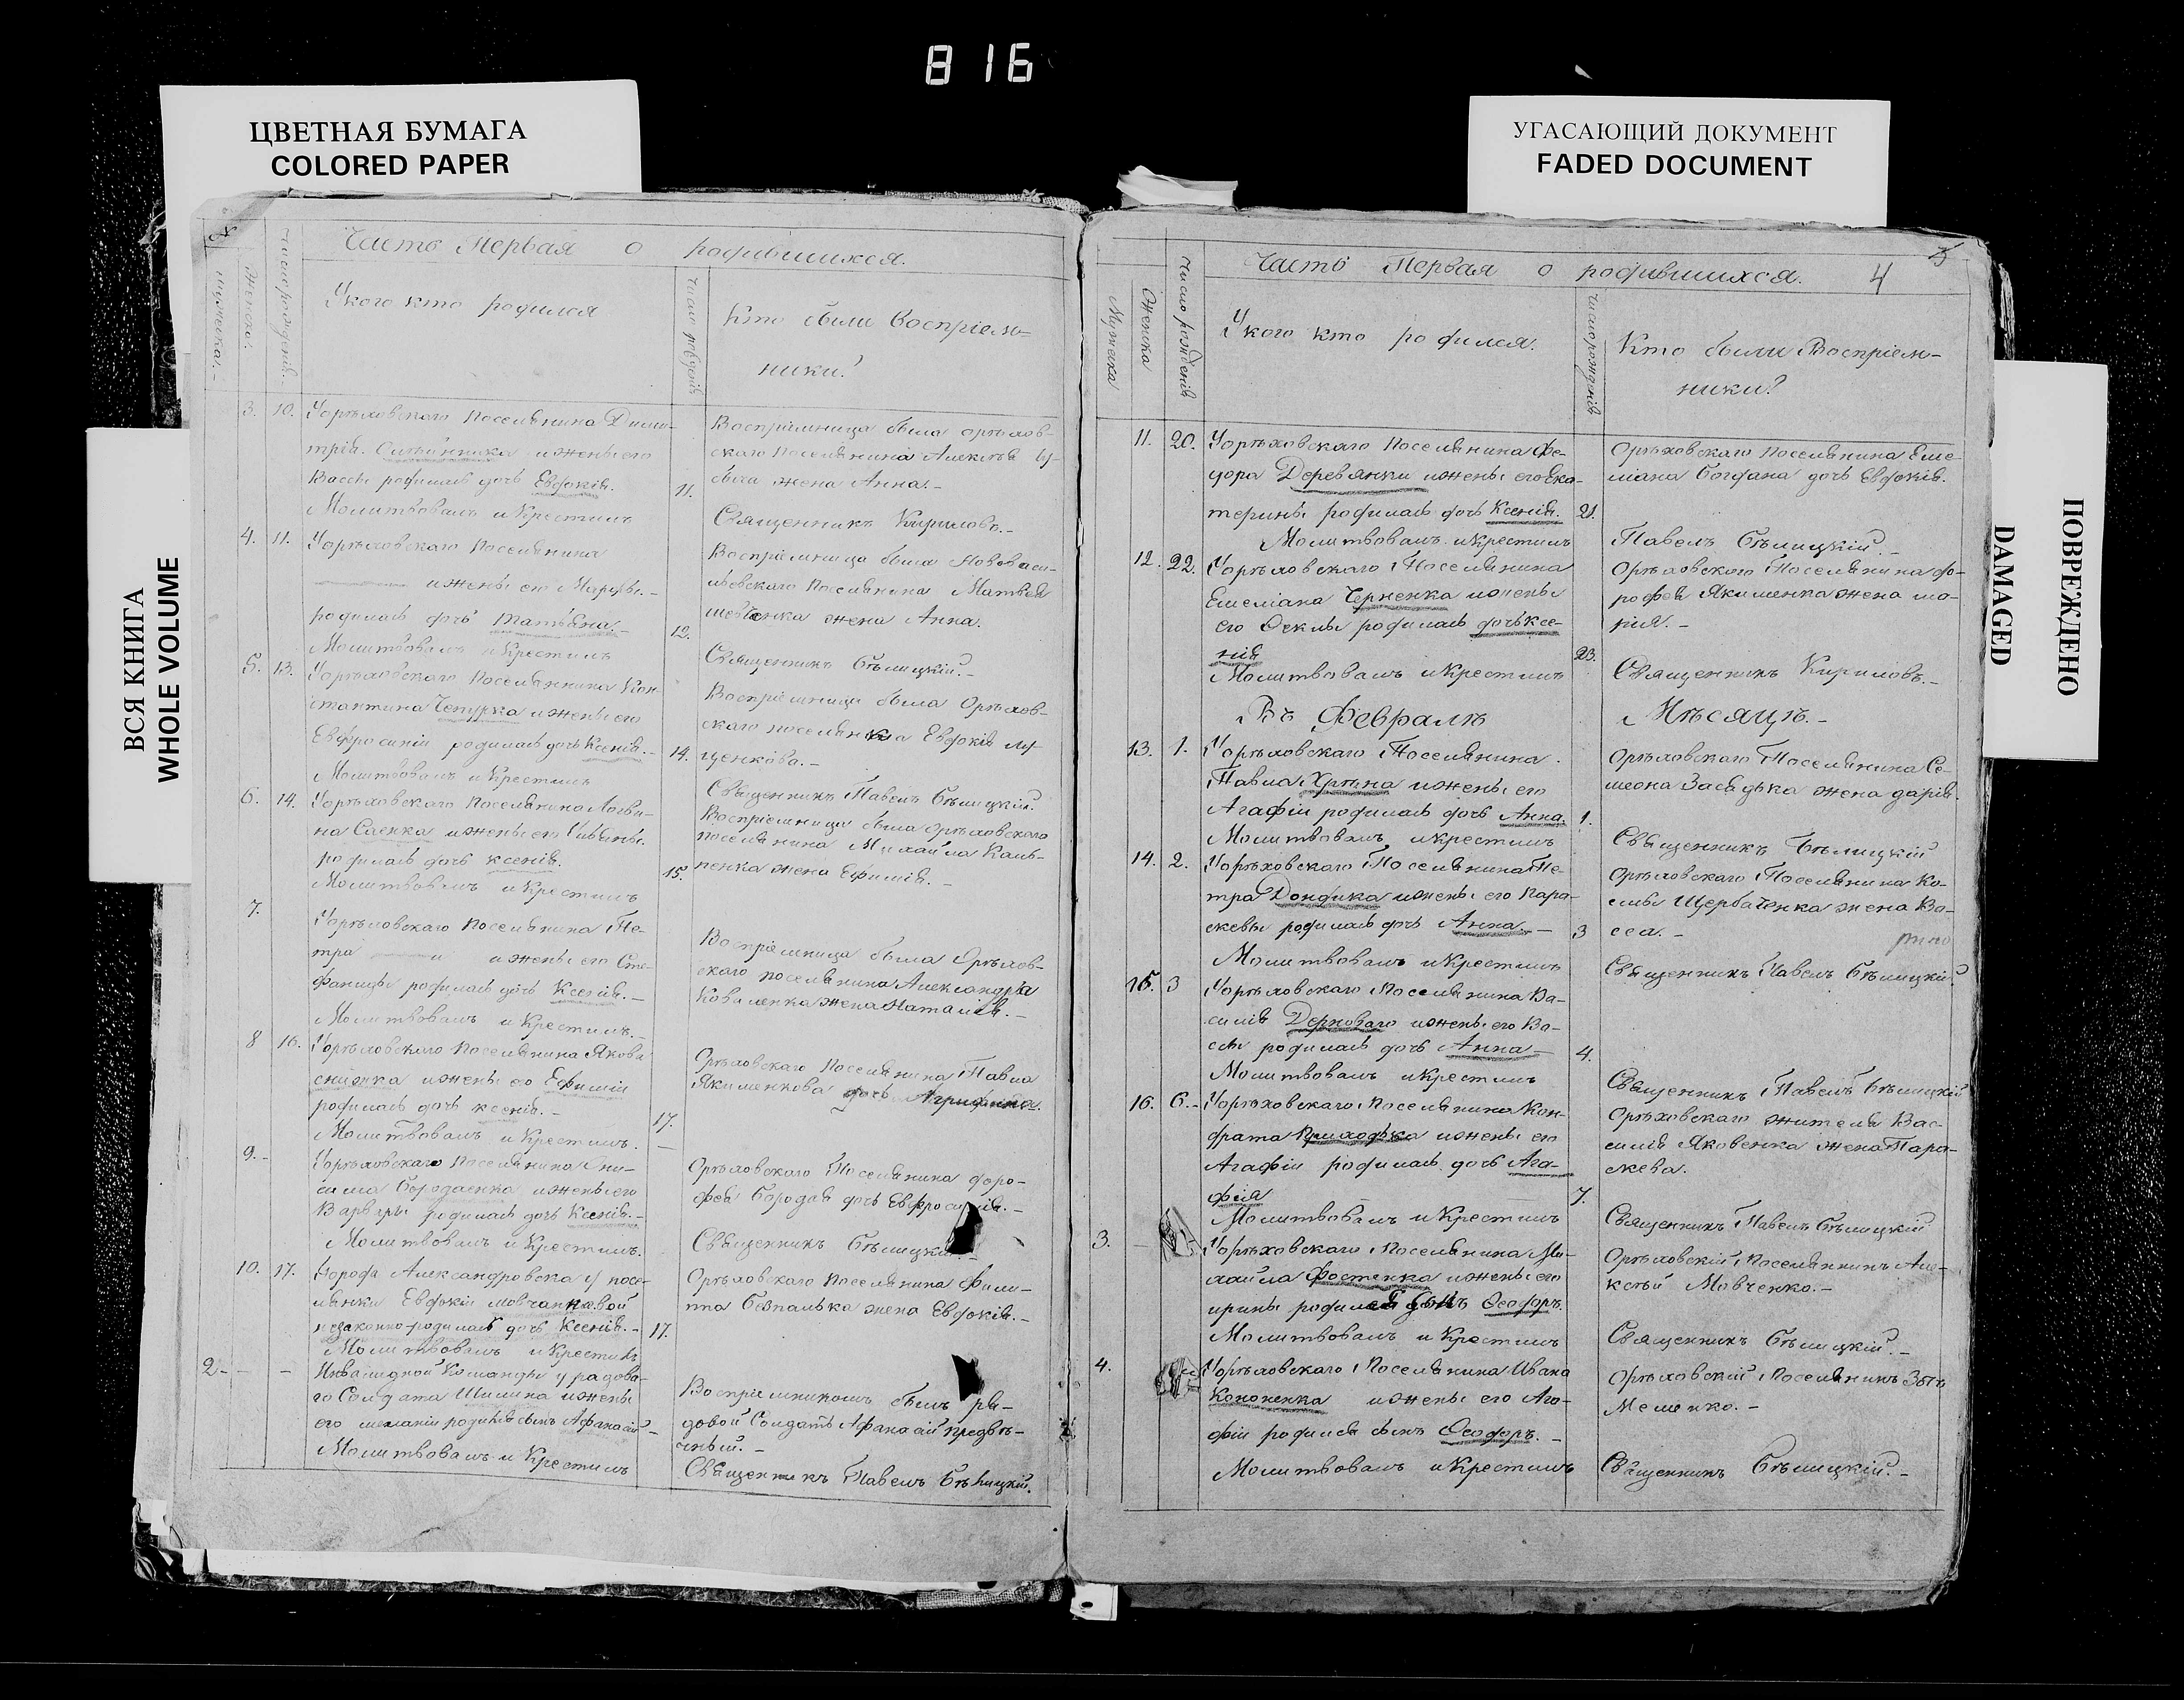 816
ЦВЕТНАЯ БУМАГА
COLORED PAPER
УГАСАЮЩИЙ ДОКУМЕНТ
FADED DOCUMENT
ВСЯ КНИГА
WHOLE VOLUME
ПОВРЕЖДЕНО
DAMAGED
Часть Первая о родившихся.
Мужеска.
Женска.
Число рожденiй.
Укого кто родился
Кто были Воспрiем-
ники?
3. 10. Уорѣховскаго Поселянина Дими-
трiя ижены его
Вассы родилась дочь Евдокiя.
Молитвовалъ и Крестилъ
11.
Воспрiемница была орѣхов-
скаго Поселянина Алексѣя
жена Анна.-
Священникъ Кириловъ.-
4. 11. Уорѣховскаго Поселянина
ижены его Марфы.-
родилась дочь Татьяна
Молитвовалъ и Крестилъ
12.
Воспрiемница была Нововаси-
льевскаго Поселянина Матвея
шевченка жена Анна.
Священникъ Бѣлицкiй.-
5. 13. Уорѣховскаго Поселянина Кон-
стантина Чепурка ижены его
Евфросинiи родилась дочь Ксенiя.-
Молитвовалъ и Крестилъ
14.
Воспрiемница была Орѣхов-
скаго поселянина Евдокiя лу-
ценкова.-
Священникъ Павелъ Бѣлицкiй.
6. 14. Уорѣховскаго Поселянина Логви-
на Саенка ижены его Ульяны.
родилась дочь ксенiя.
Молитвовалъ и Крестилъ
15.
Воспрiемница была орѣховскаго
поселянина Михайла Каль-
ченка жена Ефимiя.-
7.
Уорѣховскаго Поселянина Пе-
тра ижены его Сте-
фаниды родилась дочь Ксенiя.-
Молитвовалъ и Крестилъ.-
Воспрiемница была Орѣхов-
скаго поселянина Александра
Коваленка жена Наталiя.-
8 16. Уорѣховскаго Поселянина Якова
ижены его Ефимiи
родилась дочь ксенiя.-
Молитвовалъ и Крестилъ.
17.
Орѣховскаго Поселянина Павла
Якименкова дочь Агрипина.
9.-
Уорѣховскаго Поселянина Они-
сима Бородаенка ижены его
Варвары родилась дочь Ксенiя.-
Молитвовалъ и Крестилъ.
Орѣховскаго Поселянина доро-
фея Бородая дочь Евфросинiя.-
Священникъ Бѣлицкiй
10. 17. Города Александровска у посе-
лянки Евдокiи мовчановой
незаконно родилась дочь Ксенiя.-
Молитвовалъ и Крестилъ
17.
Орѣховскаго Поселянина Фили-
па Безпалька жена Евдокiя.-
2.- - -
Инвалидной Команды у радова-
го Солдата Шилина ижены
его меланiи родился сынъ Афанасiй-
Молитвовалъ и Крестилъ
Воспрiемникомъ былъ ря-
довой Солдатъ Афанасiй
Священникъ Павелъ Бѣлицкiй.
Часть Первая о родившихся. 4
Мужеска
Женска
Число рожденiя
Укого кто родился.
Число рожденiя
Кто были Воспрiем-
ники?
11. 20. Уорѣховскаго Поселянина Фе-
дора Деревянки ижены его Ека-
терины родилась дочь Ксенiя.
Молитвовалъ и Крестилъ
21.
Орѣховскаго Поселянина Еме-
лiана Богдана дочь Евдокiя.
Павелъ Бѣлицкiй.-
12. 22. Уорѣховскаго Поселянина
Емелiана Черненка ижены
его Феклы родилась дочь ксе-
нiя
Молитвовалъ и Крестилъ
23.
Орѣховскаго Поселянина до-
рофея Якименка жена ма-
рiя.-
Священникъ Кириловъ.-
Въ Февралѣ Мѣсяцѣ.-
13. 1. Уорѣховскаго Поселянина
Павла Хрѣна ижены его
Агафiи родилась дочь Анна.
Молитвовалъ и Крестилъ
1.
Орѣховскаго Поселянина Се-
меона Засядька жена дарiя.
Священникъ Бѣлицкiй
14. 2. Уорѣховскаго Поселянина Пе-
тра Дондика ижены его Пара-
скевы родилась дочь Анна.-
Молитвовалъ и Крестилъ
3
Орѣховскаго Поселянина Ко-
смы Щербаченка жена Ва-
сса.-
Священникъ Павелъ Бѣлицкiй.
15. 3 Уорѣховскаго Поселянина Ва-
силiя Дерноваго ижены его Ва-
ссы родилась дочь Анна-
Молитвовалъ и Крестилъ
4.
Священникъ Павелъ Бѣлицкiй
16. 6.- Уорѣховскаго Поселянина Кон-
драта Приходька ижены его
Агафiи родилась дочь Ага-
фiя
Молитвовалъ и Крестилъ
7.
Орѣховскаго жителя Вас-
силiя Яковенка жена Пара-
скева.
Священникъ Павелъ Бѣлицкiй
3. -
Уорѣховскаго Поселянина Ми-
хайла Фостенка ижены его
ирины родился сынъ Феодоръ.
Молитвовалъ и Крестилъ
Орѣховскiй Поселянинъ Але-
ксѣй Мовченко.-
Священникъ Бѣлицкiй.-
4.
Уорѣховскаго Поселянина Ивана
Кононенка ижены его Ага-
фiи родился сынъ Феодоръ.-
Молитвовалъ и Крестилъ
Орѣховскiй Поселянинъ
Священникъ Бѣлицкiй.-